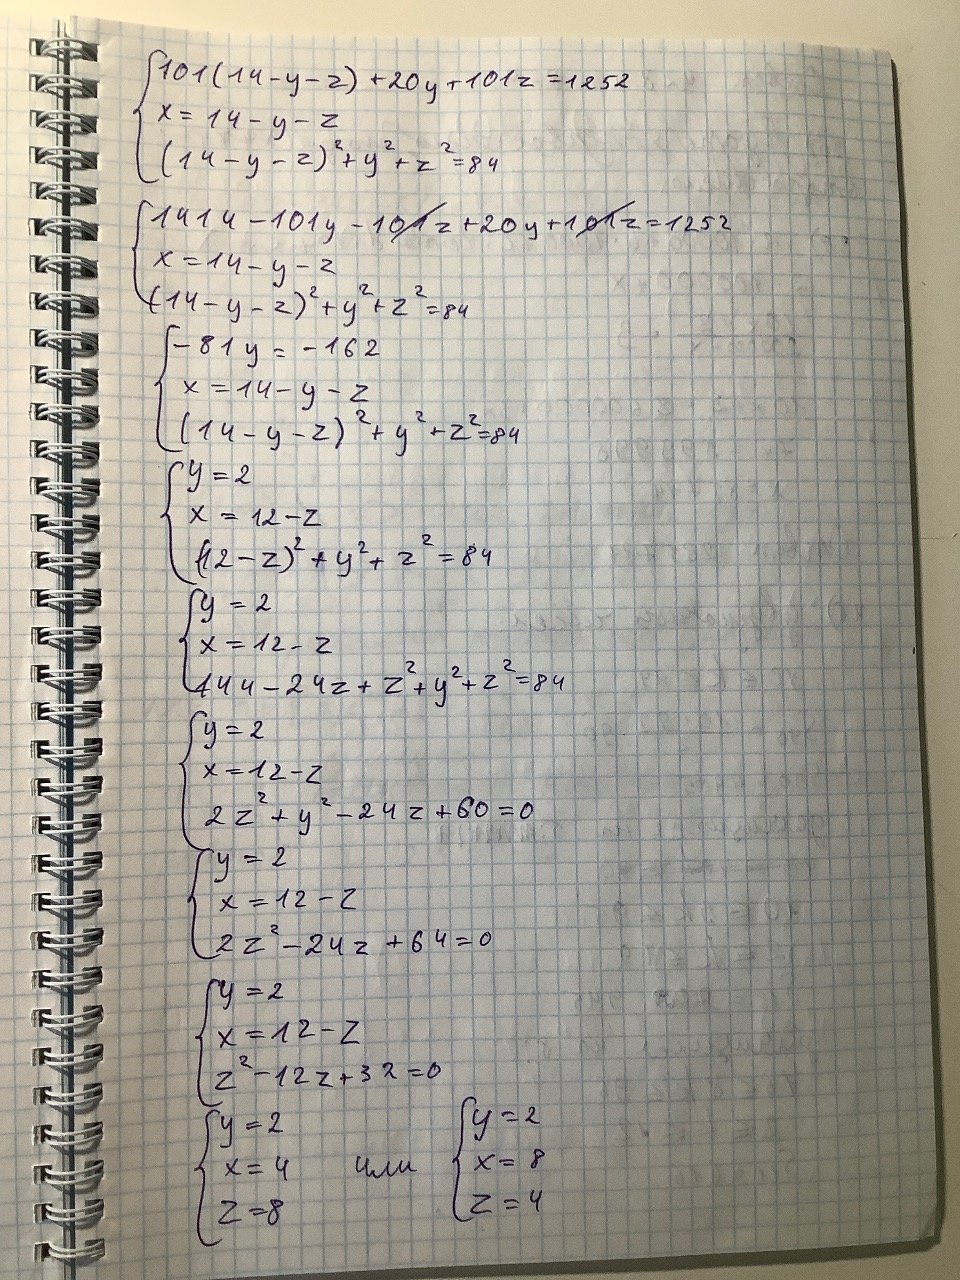 101(14-y-z)+20y+101z=1252
x=14-y-z
(14-y-z)²+y²+z²=84
1414-101y-101z+20y+101z=1252
x=14-y-z
(14-y-z)²+y²+z²=84
-81y=-162
x=14-y-z
(14-y-z)²+y²+z²=84
y=2
x=12-z
(12-z)²+y²+z²=84
y=2
x=12-z
144-24z+z²+y²+z²=84
y=2
x=12-z
2z²+y²-24z+60=0
y=2
x=12-z
2z²-24z+64=0
y=2
x=12-z
z²-12z+32=0
y=2
x=4
z=8
или
y=2
x=8
z=4